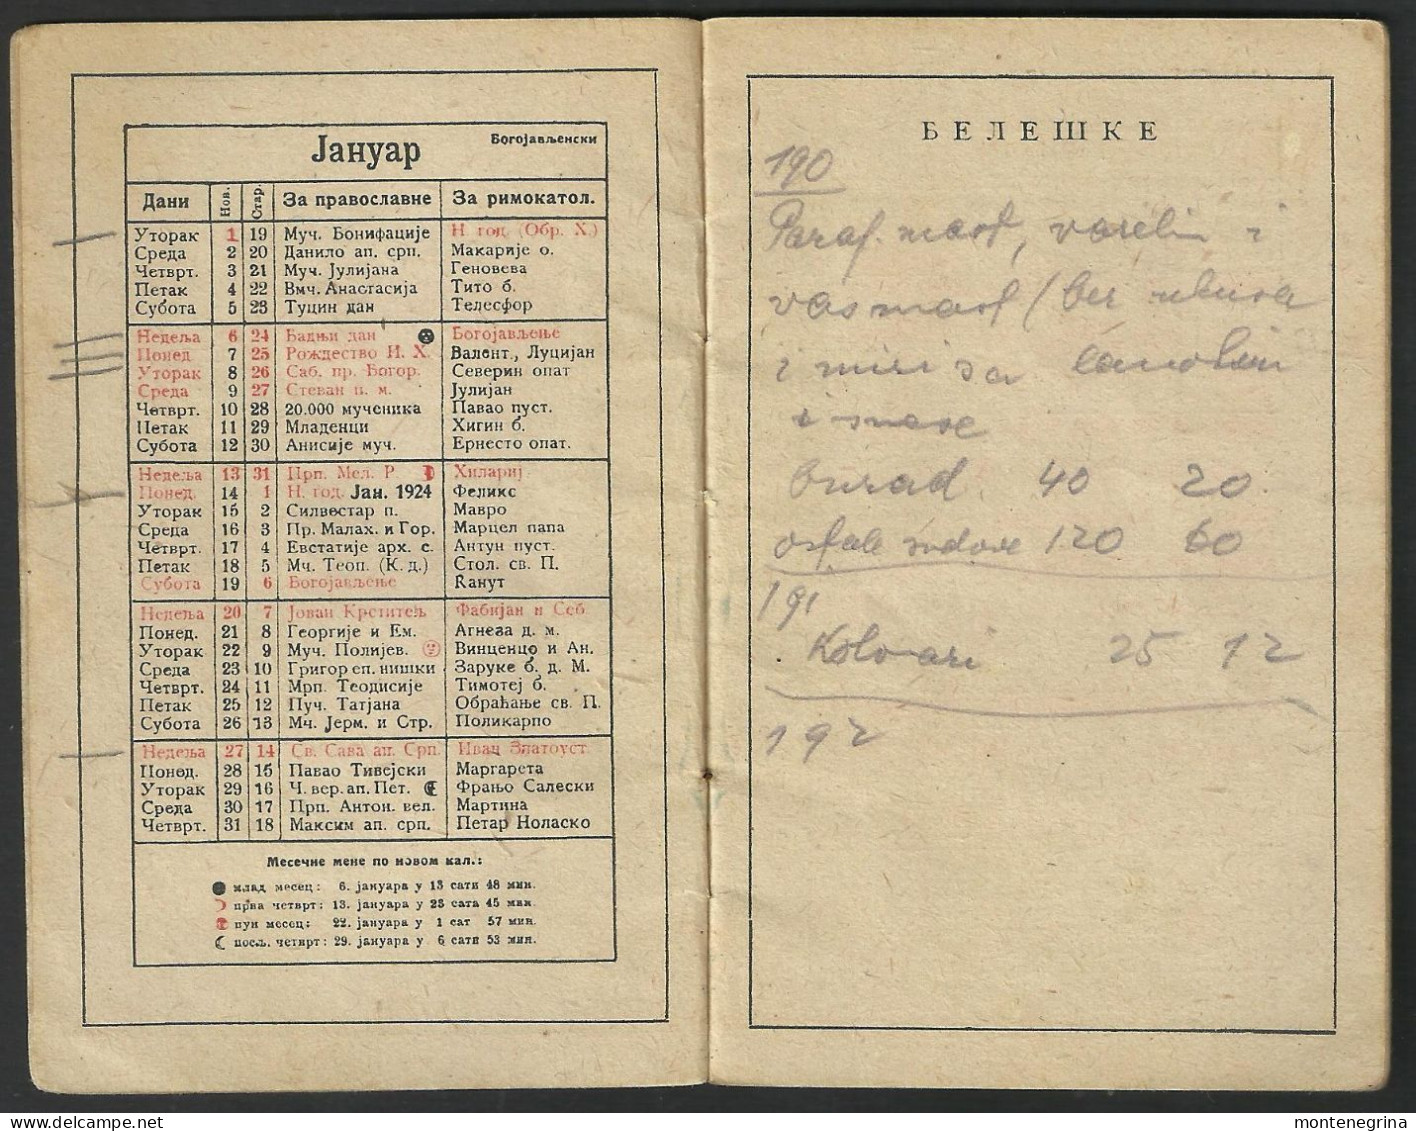 Јануар Богојављенски
Дани Нов. Стар. За православне За римокатол.
Уторак 1 19 Муч. Бонифације Н. год. (Обр. Х.)
Среда 2 20 Данило ап. срп. Макарије о.
Четврт. 3 21 Муч. Јулијана Геновева
Петак 4 22 Вмч. Анастасија Тито б.
Субота 5 23 Туцин дан Телесфор
Недеља 6 24 Бадњи дан Богојављење
Понед. 7 25 Рождество И. Х. Валент., Луцијан
Уторак 8 26 Саб. пр. Богор. Северин опат
Среда 9 27 Стеван п. м. Јулијан
Четврт. 10 28 20.000 мученика Павао пуст.
Петак 11 29 Младенци Хигин б.
Субота 12 30 Анисије муч. Ернесто опат.
Недеља 13 31 Прп. Мел. Р. Хилариј
Понед. 14 1 Н. год. Јан. 1924 Феликс
Уторак 15 2 Силвестар п. Мавро
Среда 16 3 Пр. Малах. и Гор. Марцел папа
Четврт. 17 4 Евстатије арх. с. Антун пуст.
Петак 18 5 Мч. Теоп. (К. д.) Стол. св. П.
Субота 19 6 Богојављење Канут
Недеља 20 7 Јован Крститељ Фабијан и Себ.
Понед. 21 8 Георгије и Ем. Агнеза д. м.
Уторак 22 9 Муч. Полијев. Винценцо и Ан.
Среда 23 10 Григор еп. нишки Заруке б. д. М.
Четврт. 24 11 Мрп. Теодисије Тимотеј б.
Петак 25 12 Пуч. Татјана Обраћање св. П.
Субота 26 13 Мч. Јерм. и Стр. Поликарпо
Недеља 27 14 Св. Сава ап. Срп. Иван Златоуст.
Понед. 28 15 Павао Тивејски Маргарета
Уторак 29 16 Ч. вер. ап. Пет. Фрањо Салески
Среда 30 17 Прп. Антон. вел. Мартина
Четврт. 31 18 Максим ап. срп. ПетарНоласко
Месечне мене по новом кал.:
млад месец: 6. јануара у 13 сати 48 мин.
прва четврт: 13. јануара у 23 сата 45 мин.
пун месец: 22. јануара у 1 сат 57 мин.
посљ. четврт: 29. јануара у 6 сати 53 мин.
БЕЛЕШКЕ
190
Paraf. mast, vazelin i
vas mast (bez ukusa
i mirisa lanolin
i
burad 40 20
ostale sudove 120 60
191
Kolovari 25 12
192
montenegrina